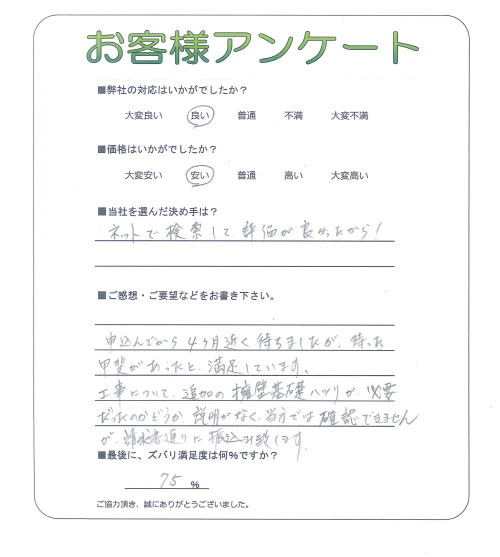 お客様アンケート
■弊社の対応はいかがでしたか？
大変良い 良い 普通 不満 大変不満
■価格はいかがでしたか？
大変安い 安い 普通 高い 大変高い
■当社を選んだ決め手は？
ネットで検索して評価が良かったから！
■ご感想・ご要望などをお書き下さい。
申込んでから4ヶ月近く待ちましたが、待った
甲斐があったと、満足しています。
工事について、追加の擁壁基礎ハツリが、必要
だったのかどうか、説明がなく、当方では確認できません
が、請求書通りに振込み致します。
■最後に、ズバリ満足度は何%ですか？
75 %
ご協力頂き、誠にありがとうございました。